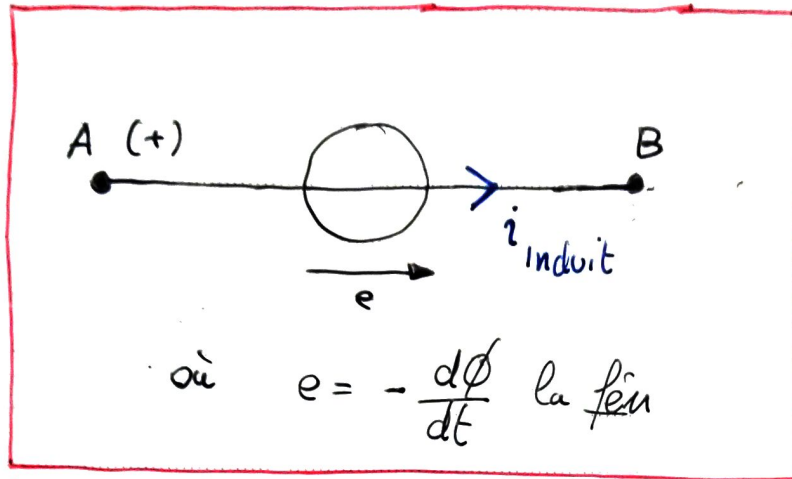 A (+) B
i induit
e
où e = - dϕ/dt la fém